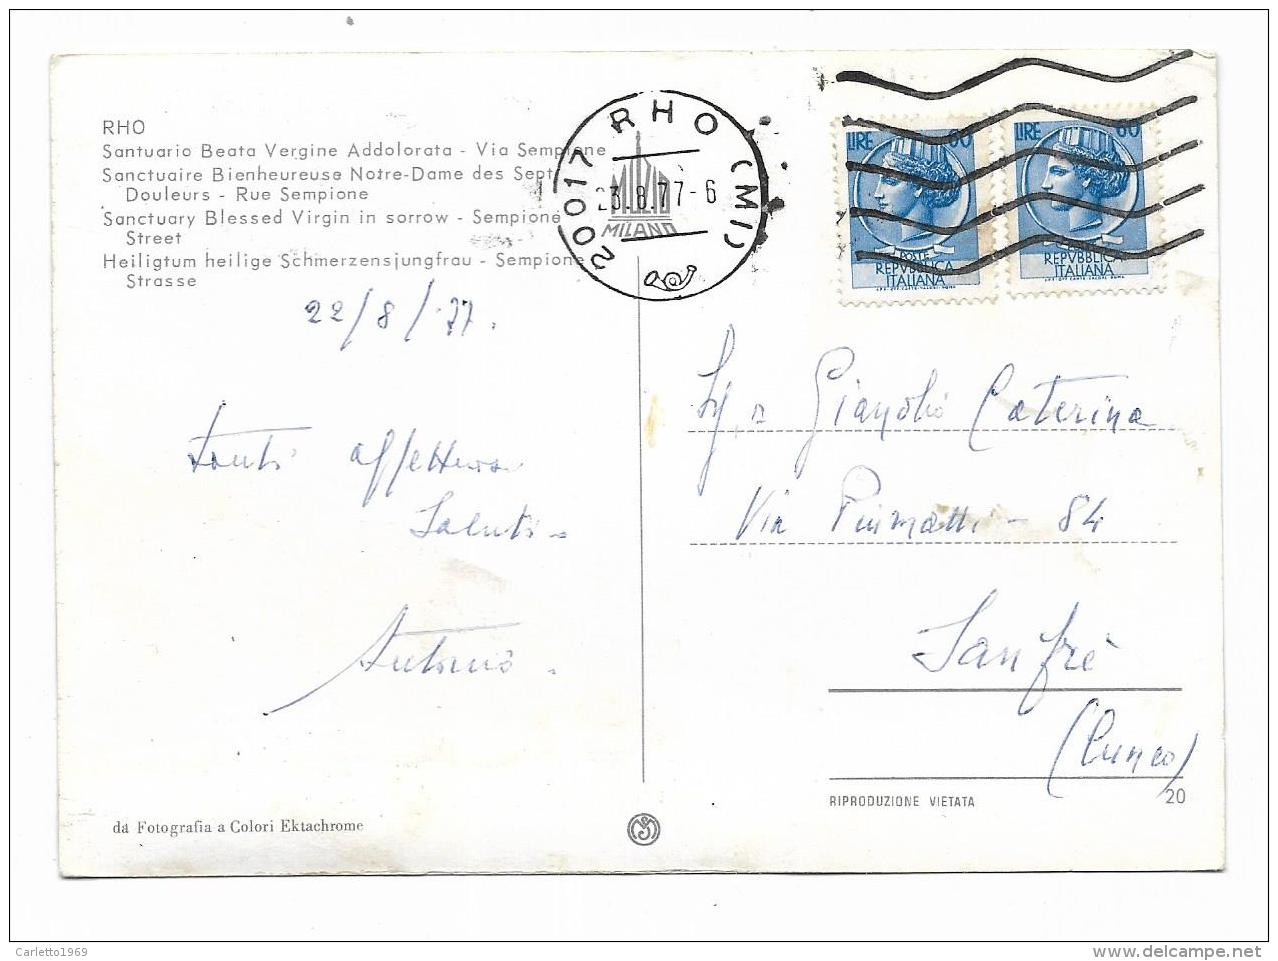 RHO
Santuario Beata Vergine Addolorata - Via Sempione
Sanctuaire Bienheureuse Notre-Dame des Sept
Douleurs - Rue Sempione
Sanctuary Blessed Virgin in sorrow - Sempione
Street
Heiligtum heilige Schmerzensjungfrau - Sempione
Strasse
22/8/77.
Tanti affettuosi
Saluti -
Antonio.
da Fotografia a Colori Ektachrome
20017 RHO (MI)
23.8.77-6
MILANO
LIRE 60
POSTE
REPVBBLICA
ITALIANA
LIRE 60
REPVBBLICA
ITALIANA
Caterina
Via - 84
Sanfrè
(Cuneo)
RIPRODUZIONE VIETATA
20
Carletto1969
delcampe.net